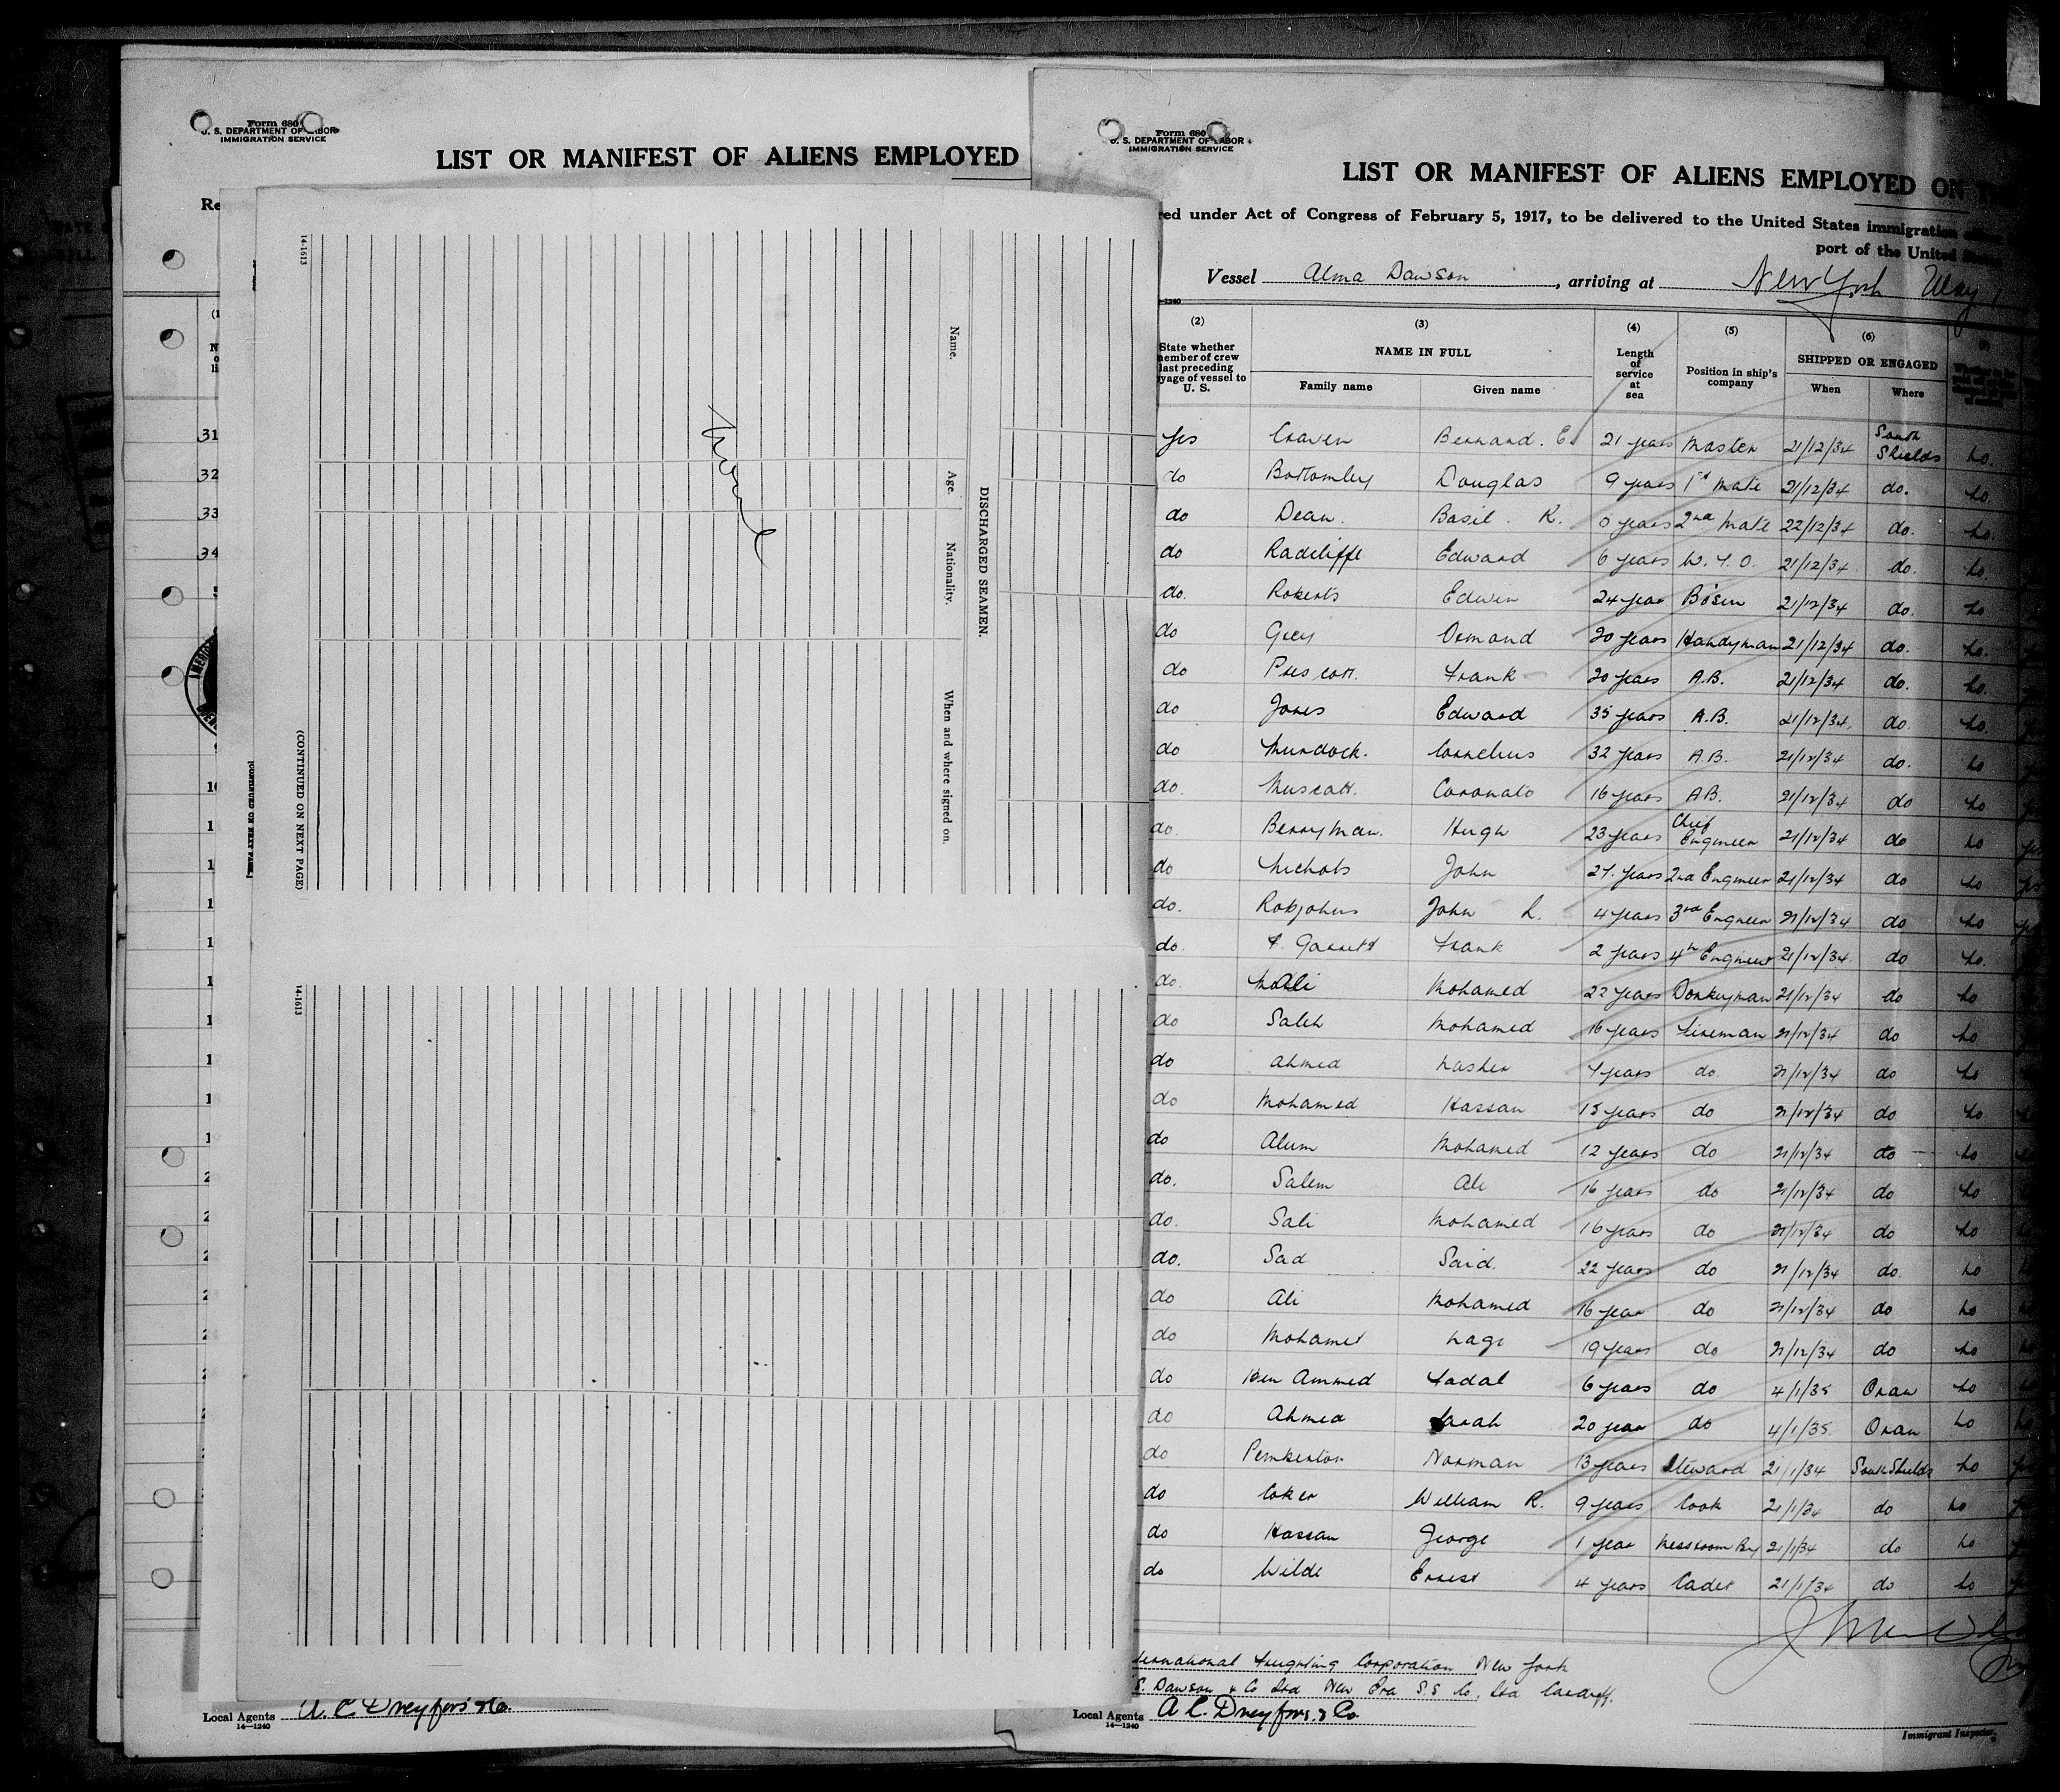 Form 680
U. S. DEPARTMENT OF LABOR
IMMIGRATION SERVICE
LIST OR MANIFEST OF ALIENS EMPLOYED
Re
31
32
33
34
14-1613
Name.
Age.
Nationality.
When and where signed on.
DISCHARGED SEAMEN.
None
(CONTINUED ON NEXT PAGE)
14-1613
Local Agents A. C Dreyfors & Co.
14—1240
Form 680
U. S. DEPARTMENT OF LABOR
IMMIGRATION SERVICE
LIST OR MANIFEST OF ALIENS EMPLOYED ON
red under Act of Congress of February 5, 1917, to be delivered to the United States immigration
port of the United
Vessel Alma Dawson, arriving at New York May 1
(2) (3) (4) (5) (6)
State whether member of crew last preceding voyage of vessel to U. S. NAME IN FULL Length of service at sea Position in ship's company SHIPPED OR ENGAGED
Family name Given name When Where
Yes Craven Bernard. E. 21 years Master 21/12/34 South Shields No.
do Bottomley Douglas 9 years 1st Mate 21/12/34 do. No.
do Dean. Basil. K. years 2nd Mate 22/12/34 do. No.
do Radcliffe Edward 6 years W. T. O. 21/12/34 do. No.
do. Roberts Edwin 24 year Bosun 21/12/34 do. No.
do Grey Osmond 20 years Handyman 21/12/34 do. No.
do Prescott. Frank 20 years A.B. 21/12/34 do. No.
do Jones Edward 35 years A.B. 21/12/34. do. No.
do Murdock. Cornelius 32 years A.B. 21/12/34 do. No
do. Muscatt. Coronato 16 years AB. 21/12/34 do No
do. Berryman. Hugh 23 years Chief Engineer 21/12/34 do No
do Nichols John 27. years 2nd Engineer 21/12/34 do No
do. Robjohns John L. 4 years 3rd Engineer 21/12/34 do No
do. F. Garrett Frank 2 years 4th Engineer 21/12/34. do No.
do. Ali Mohamed 22 years Donkeyman 21/12/34 do No
do Saleh Mohamed 16 years Fireman 21/12/34 do No
do Ahmed Nasher years do. 21/12/34 do No
do Mohamed Hassan 15 years do 21/12/34 do No
do Alum Mohamed 12 years do 21/12/34 do No
do. Salem Ali 16 years do 21/12/34 do No
do. Sali Mohamed 16 years do 21/12/34 do No
do. Sad Said. 22 years do 21/12/34 do. No
do Ali Mohamed 16 year do 21/12/34 do No
do Mohamed Nagi 19 years do 21/12/34 do No
do Ben Ammed Fadal 6 years do 4/1/35 Oran No
do Ahmed Sarah 20 year do 4/1/35. Oran No
do Pemberton Norman 13 years Steward 21/1/34 South Shields No
do Coker William R. 9 years Cook 21/1/34 do No
do Hassan George 1 year Messroom Boy 21/1/34 do No
do Wilde Ernest 4 years Cadet 21/1/34 do No
ternational Freighting Corporation New York
S. Dawson & Co Ltd New Era S.S Co. Ltd Cardiff.
Local Agents A. C. Dreyfors. & Co.
14—1240
Immigrant Inspector.